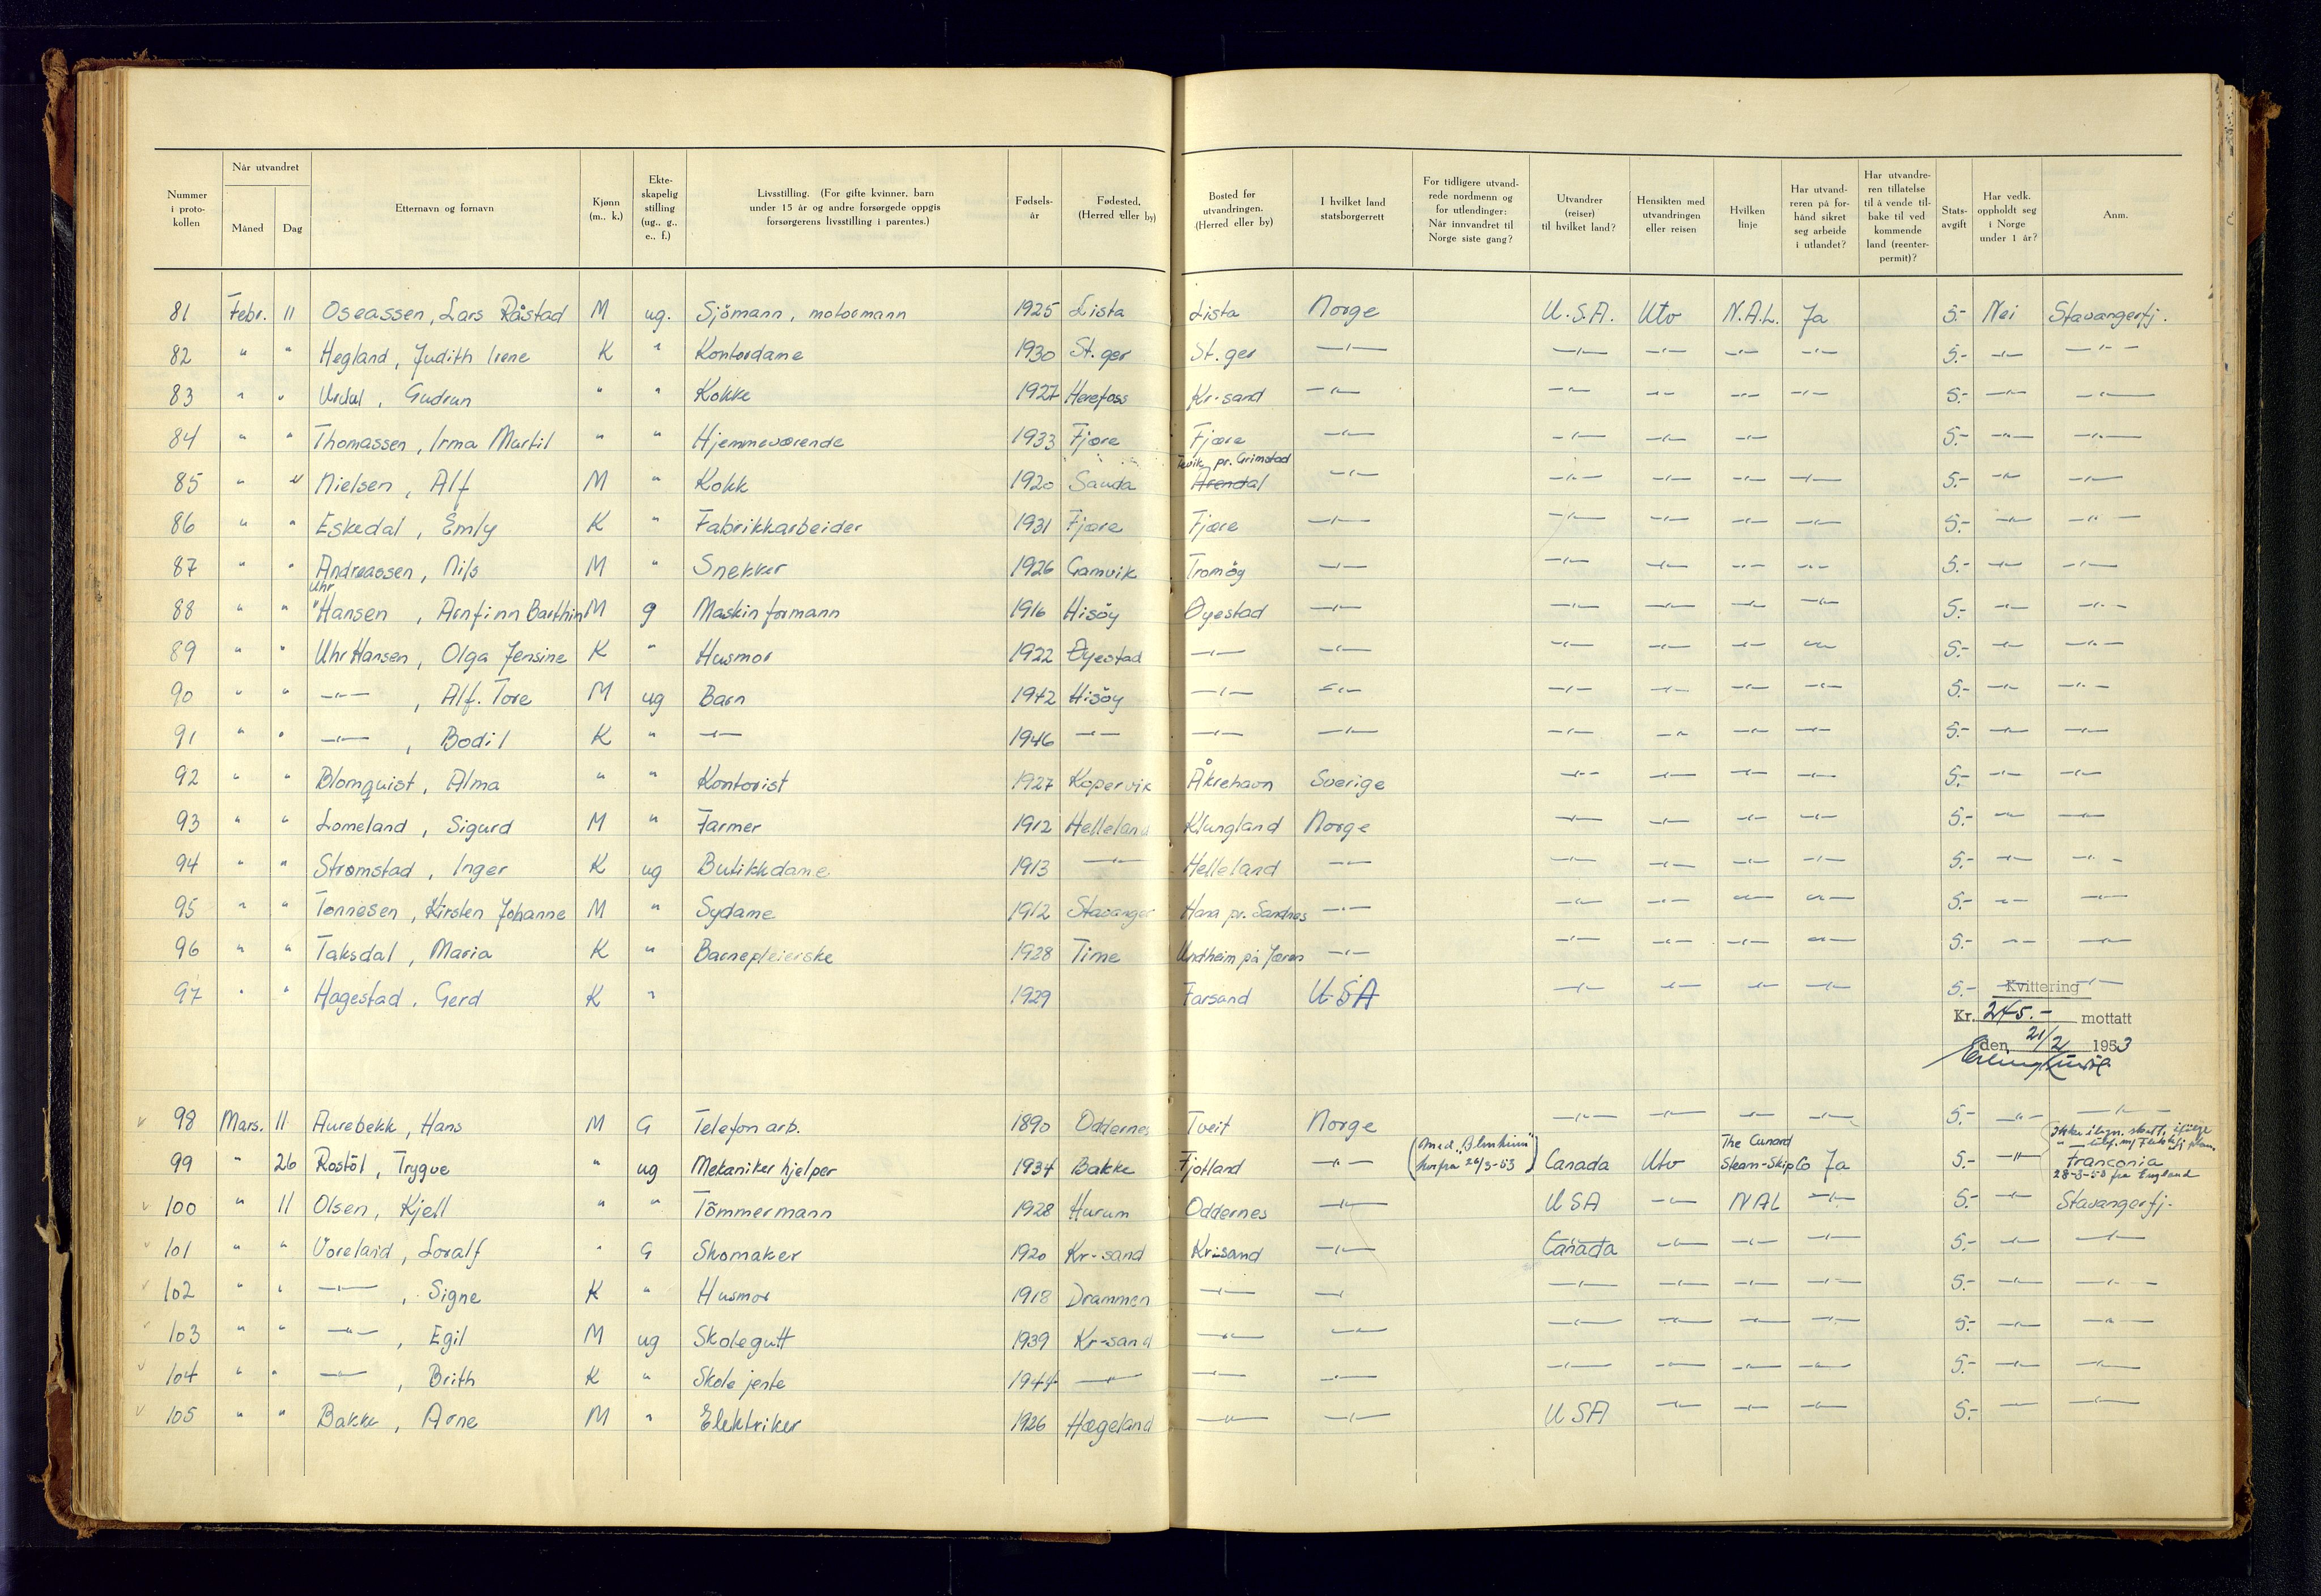 Nummer i proto- kollen | Når utvandret Måned Dag | Etternavn og fornavn | Kjønn (m., k.) | Ekte- skapelig stilling (ug., g., e., f.) | Livsstilling. (For gifte kvinner, barn under 15 år og andre forsørgede oppgis forsørgerens livsstilling i parentes.) | Fødsels- år | Fødested. (Herred eller by) | Bosted før utvandringen. (Herred eller by) | I hvilket land statsborgerrett | For tidligere utvand- rede nordmenn og for utlendinger: Når innvandret til Norge siste gang? | Utvandrer (reiser) til hvilket land? | Hensikten med utvandringen eller reisen | Hvilken linje | Har utvand- reren på for- hånd sikret seg arbeide i utlandet? | Har utvandre- ren tillatelse til å vende til- bake til ved kommende land (reenter- permit)? | Stats- avgift | Har vedk. oppholdt seg i Norge under 1 år? | Anm.
81 Febr. 11 Oseassen, Lars Råstad M ug. Sjömann, motormann 1925 Lista Lista Norge U.S.A. Utv N.A.L. Ja 5.- Nei Stavangerfj.
82 " " Hegland, Judith Irene K " Kontordame 1930 St.ger St.ger —"— —"— —"— —"— —"— 5.- —"— —"—
83 " " Urdal, Gudrun " " Kokke 1927 Herefoss Kr.sand —"— —"— —"— —"— —"— 5.- —"— —"—
84 " " Thomassen, Irma Martil " " Hjemmeværende 1933 Fjære Fjære —"— —"— —"— —"— 5.- —"— —"—
pr. Grimstad
85 " " Nielsen, Alf M " Kokk 1920 Sauda Arendal —"— —"— —"— —"— —"— 5.- —"— —"—
86 " " Eskedal, Emly K " Fabrikkarbeider 1931 Fjære Fjære —"— —"— —"— —"— —"— 5.- —"— —"—
87 " " Andreassen, Nils M " Snekker 1926 Gamvik Tromög —"— —"— —"— —"— —"— 5.- —"— —"—
Uhr
88 " " "Hansen, Arnfinn Barthin M g Maskinformann 1916 Hisöy Öyestad —"— —"— —"— —"— —"— 5.- —"— —"—
89 " " Uhr Hansen, Olga Jensine K " Husmor 1922 Öyestad —"— —"— —"— —"— —"— —"— 5.- —"— —"—
90 " " —"—, Alf. Tore M ug Barn 1942 Hisöy —"— —"— —"— —"— —"— —"— 5.- —"— —"—
91 " " —"—, Bodil K " —"— 1946 —"— —"— —"— —"— —"— —"— —"— 5.- —"— —"—
92 " " Blomquist, Alma " " Kontorist 1927 Kopervik Åkrehavn Sverige —"— —"— —"— —"— 5.- —"— —"—
93 " " Lomeland, Sigurd M " Farmer 1912 Helleland Klungland Norge —"— —"— —"— —"— 5.- —"— —"—
94 " " Strømstad, Inger K ug Butikkdame 1913 —"— Helleland —"— —"— —"— —"— —"— 5.- —"— —"—
95 " " Tønnesen, Kirsten Johanne M " Sydame 1912 Stavanger Hana pr. Sandnes —"— —"— —"— —"— —"— 5.- —"— —"—
96 " " Taksdal, Maria K " Barnepleierske 1928 Time Undheim på Jæren —"— —"— —"— —"— —"— 5.- —"— —"—
97 " " Hagestad, Gerd K " 1929 Farsund USA —"— —"— —"— —"— 5.- —"—
Kvittering
Kr. 245.- mottatt
den 21/2 1953
98 Mars. 11 Aurebekk, Hans M G Telefon arb. 1890 Oddernes Tveit Norge —"— —"— —"— —"— 5.- —"— —"—
99 " 26 Rostöl, Trygve " ug Mekaniker hjelper 1934 Bakke Fjotland —"— (med "Blenheim" herfra 26/3-53) Canada Utv The Cunard Steam-Skip Co Ja 5.- —"— Franconia
28-3-53 fra England
100 " 11 Olsen, Kjell " " Tömmermann 1928 Hurum Oddernes —"— USA —"— NAL —"— 5.- —"— Stavangerfj.
101 " " Voreland, Loralf " G Skomaker 1920 Kr-sand Kr-sand —"— Canada —"— —"— —"— 5.- —"— —"—
102 " " —"—, Signe K " Husmor 1918 Drammen —"— —"— —"— —"— —"— —"— 5.- —"— —"—
103 " " —"—, Egil M ug Skolegutt 1939 Kr-sand —"— —"— —"— —"— —"— —"— 5.- —"— —"—
104 " " —"—, Brith K " Skole jente 1944 —"— —"— —"— —"— —"— —"— —"— 5.- —"— —"—
105 " " Bakke, Arne M " Elektriker 1926 Hægeland —"— —"— USA —"— —"— —"— 5.- —"— —"—